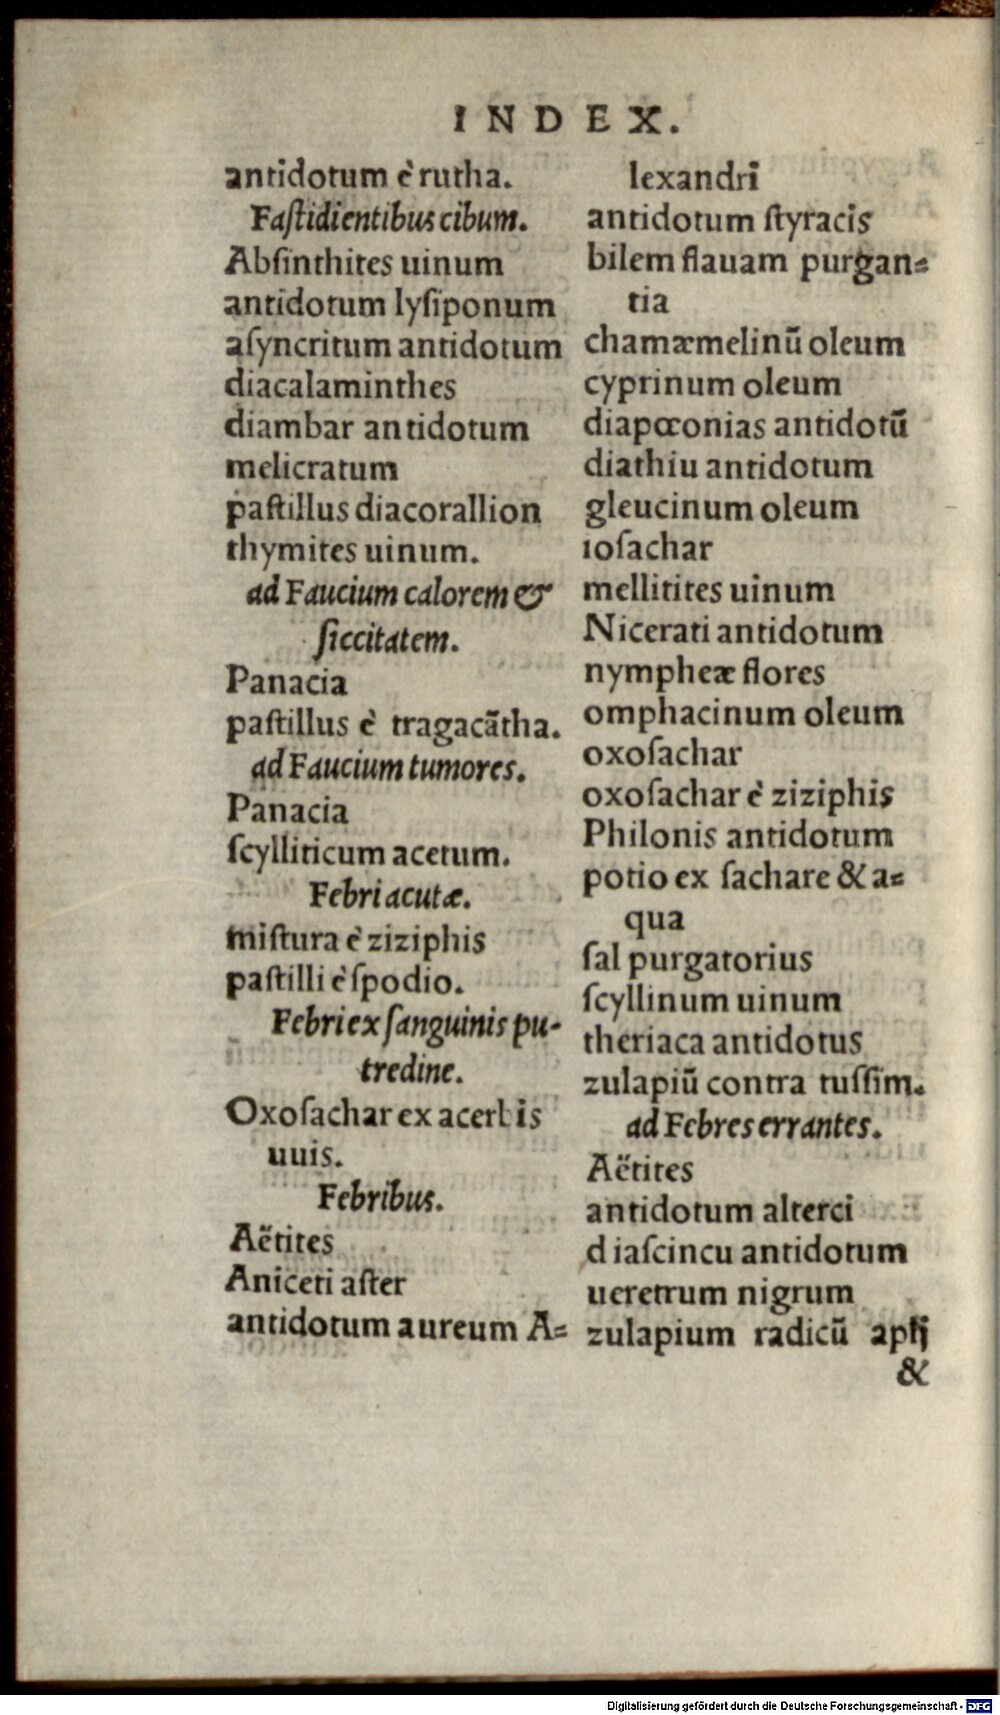 INDEX.
antidotum è rutha.
Faſtidientibus cibum.
Abſinthites uinum
antidotum lyſiponum
aſyncritum antidotum
diacalaminthes
diambar antidotum
melicratum
paſtillus diacorallion
thymites uinum.
ad Faucium calorem &
ſiccitatem.
Panacia
paſtillus è tragacãtha.
ad Faucium tumores.
Panacia
ſcylliticum acetum.
Febri acutæ.
miſtura è ziziphis
paſtilli è ſpodio.
Febri ex ſanguinis pu-
tredine.
Oxoſachar ex acerbis
uuis.
Febribus.
Aëtites
Aniceti aſter
antidotum aureum A=
lexandri
antidotum ſtyracis
bilem flauam purgan=
tia
chamæmelinũ oleum
cyprinum oleum
diapœonias antidotũ
diathiu antidotum
gleucinum oleum
ioſachar
mellitites uinum
Nicerati antidotum
nympheæ flores
omphacinum oleum
oxoſachar
oxoſachar è ziziphis
Philonis antidotum
potio ex ſachare & a=
qua
ſal purgatorius
ſcyllinum uinum
theriaca antidotus
zulapiũ contra tuſſim.
ad Febres errantes.
Aëtites
antidotum alterci
diaſcincu antidotum
ueretrum nigrum
zulapium radicũ apij
&
Digitalisierung gefördert durch die Deutsche Forschungsgemeinschaft - DFG